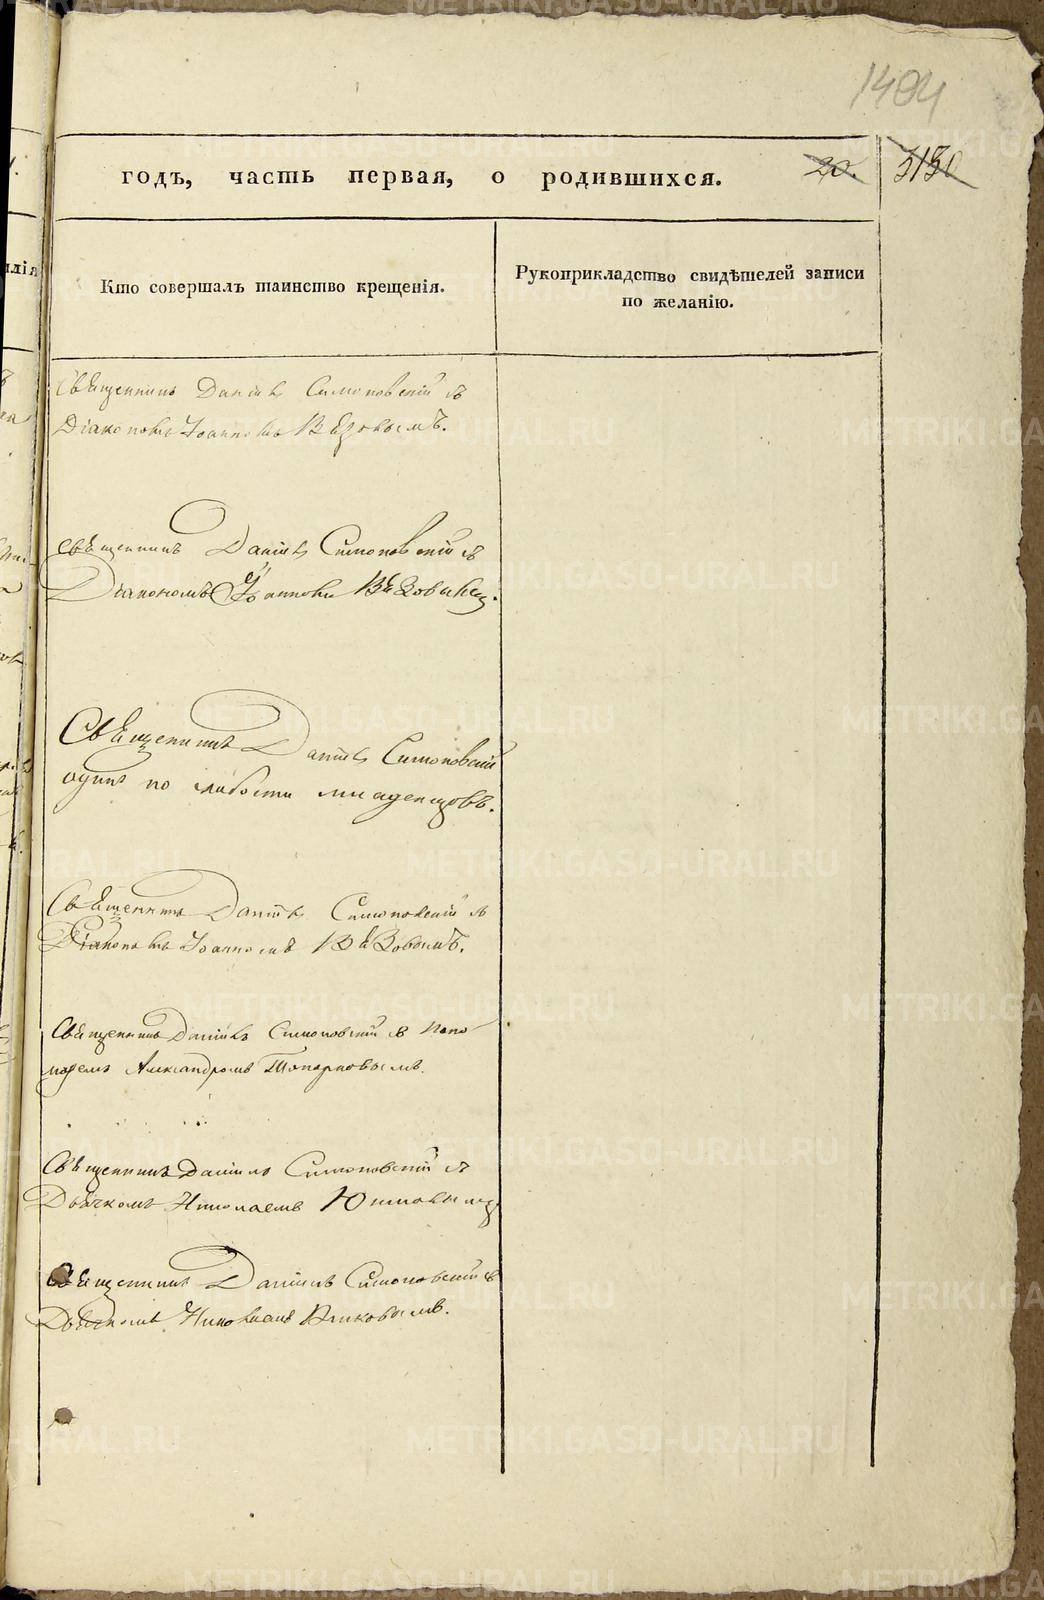 1494
годъ, часть первая, о родившихся.
20.
3130
Кто совершалъ таинство крещенія.
Рукоприкладство свидѣтелей записи
по желанію.
Священникъ Даніилъ Симоновскій съ
Діакономъ Іоанномъ
Священникъ Даніилъ Симоновскій съ
Діакономъ Іоанномъ
Священникъ Даніилъ Симоновскій
одинъ по слабости младенцовъ.
Священникъ Даніилъ Симоновскій съ
Діакономъ Іоанномъ
Священникъ Даніилъ Симоновскій съ Поно-
маремъ Александромъ Топорковымъ.
Священникъ Даніилъ Симоновскій съ
Дьячкомъ Николаемъ
Священникъ Даніилъ Симоновскій съ
Дьячкомъ Николаемъ
METRIKI.GASO-URAL.RU